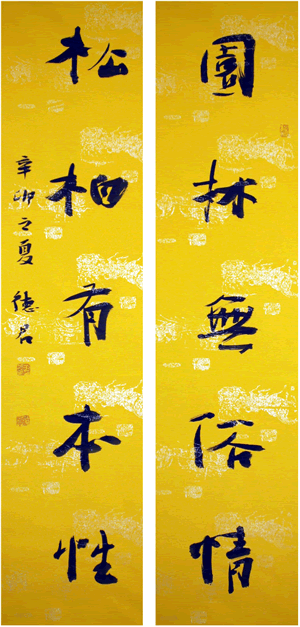 園林無俗情
松柏有本性
辛卯之夏 德君